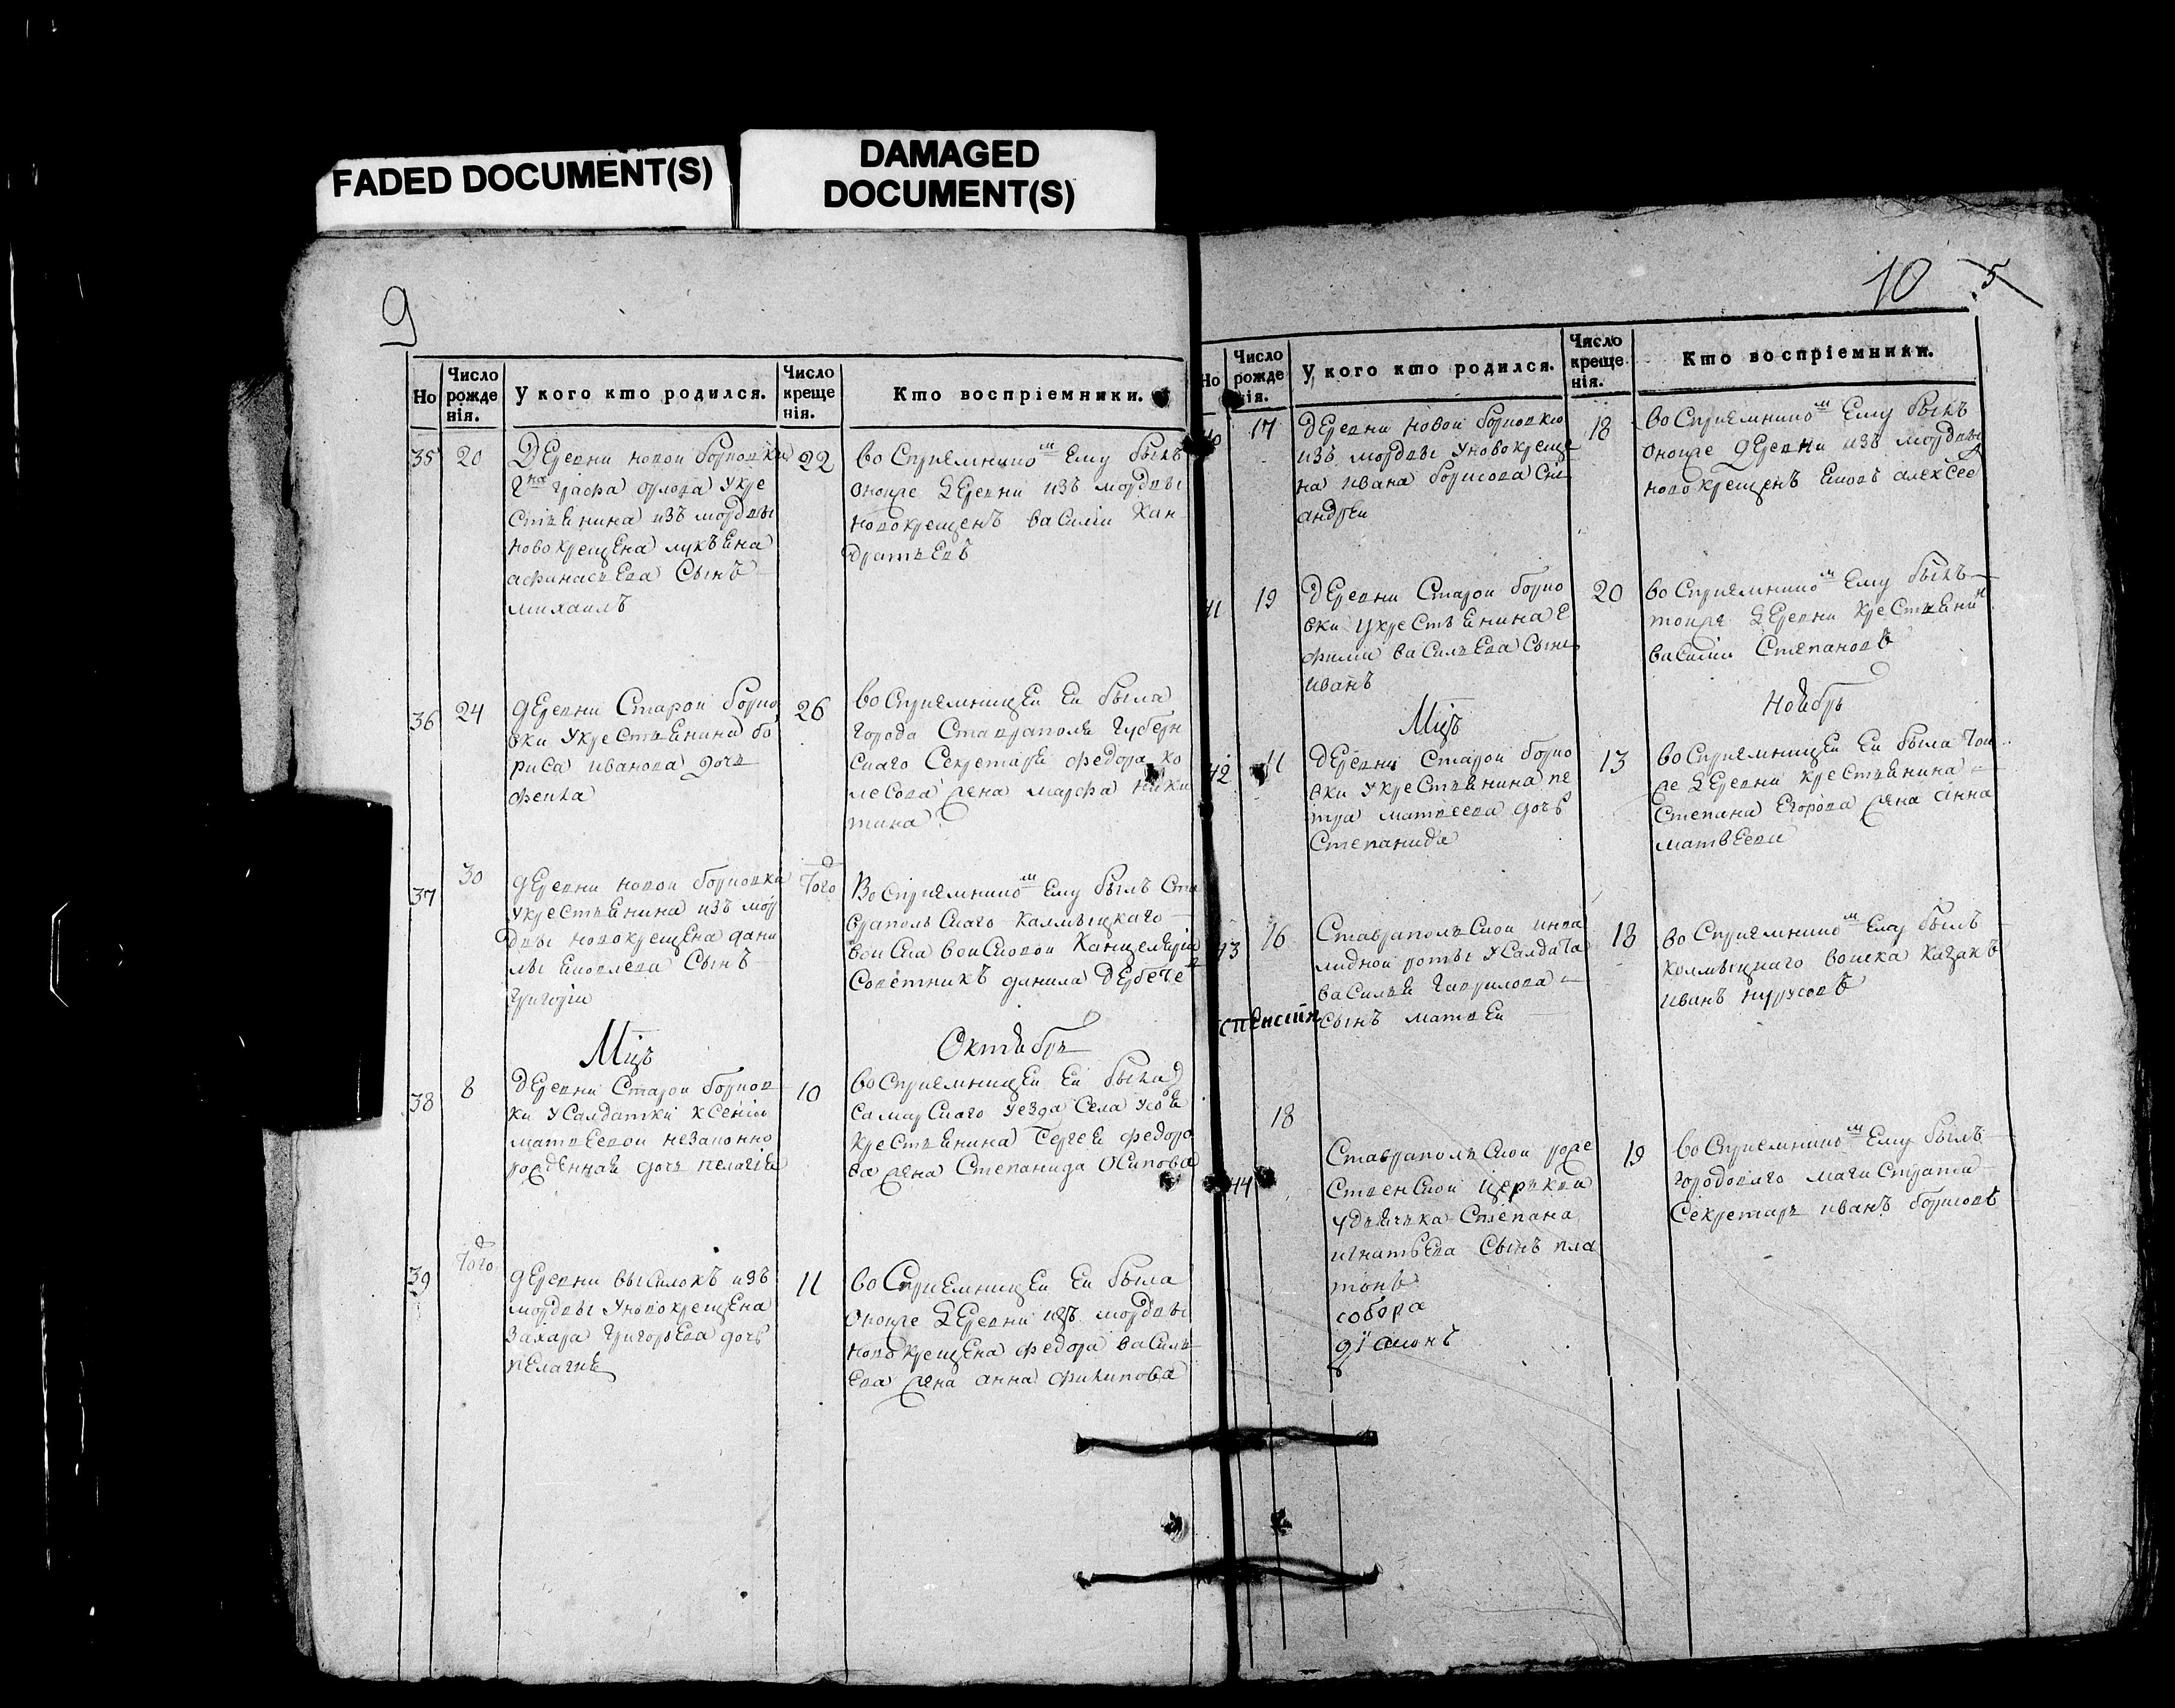 FADED DOCUMENT(S)
DAMAGED
DOCUMENT(S)
9
Но
Число рожденія.
У кого кто родился.
Число крещенія.
Кто воспріемники.
35
20
Деревни новой борковки
гна графа орлова у кре
стьянина изъ мордвы
новокрещена лукьяна
афанасьева Сынъ
михаилъ
22
воспрiемникомъ ему былъ
оной же деревни изъ мордвы
новокрещенъ василiи Кан
дратьевъ
36
24
деревни Старой борко
вки у крестьянина бо
риса иванова дочь
фекла
26
воспрiемницей ей была
города Ставраполя губерн
скаго Секретаря федора ко
лесова жена марфа ники
тина
37
30
деревни новой борковки
у крестьянина изъ мор
двы новокрещена дани
лы яковлева Сынъ
григорiи
Того
Воспрiемникомъ ему былъ Ста
врапольскаго калмыцкаго
воиска воисковой Канцелярiи
Советникъ данила дербетевъ
Мцъ
Октябрь
38
8
деревни Старой борков
ки у Салдатки ксенiи
матвеевой незаконно
рожденная дочь пелагiя
10
воспрiемницей ей была
самарскаго уезда Села усоля
крестьянина Сергея федоро
ва жена Степанида Осипова
39
Того
деревни выселокъ изъ
мордвы у новокрещена
захара григорьева дочь
пелагия
11
воспрiемницей ей была
оной же деревни изъ мордвы
новокрещена федора василь
ева жена анна филипова
10
5
Но
Число рожденія.
У кого кто родился.
Число крещенія.
Кто воспріемники.
17
деревни новой борковки
изъ мордвы у новокреще
на ивана борисова Снъ
андреи
18
воспрiемникомъ ему былъ
оной же деревни изъ мордвы
новокрещенъ яковъ алексее
41
19
деревни Старой борко
вки у крестьянина е
фима васильева Сынъ
иванъ
20
воспрiемникомъ ему былъ
той же деревни крестьянинъ
василiи Степановъ
Мцъ
Ноябрь
42
11
деревни Старой борко
вки у крестьянина пе
тра матвеева дочь
Степанида
13
воспрiемницей ей была той
же деревни крестьянина
Степана Егорова жена анна
матвеева
43
16
Ставрапольской инва
лидной роты у Салдата
василья гаврилова
сынъ матвей
18
воспрiемникомъ ему былъ
колмыцкаго воиска казакъ
иванъ
44
18
Ставрапольской роже
ственской церкви
у дьячька Степана
игнатьева Сынъ пла
тонъ
собора
дiаконъ
19
воспрiемникомъ ему былъ
городоваго магистрата
Секретарь иванъ борисовъ